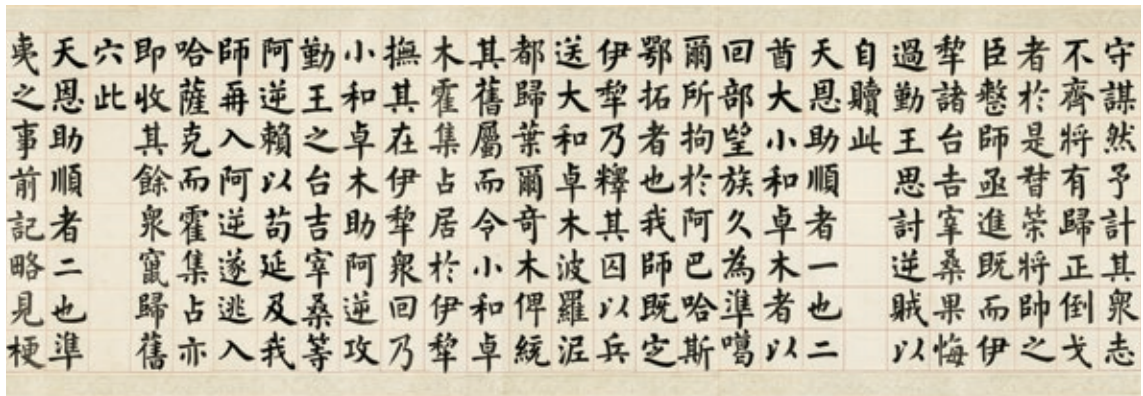 守謀然予計其衆志
不齊將有歸正倒戈
者於是督策將帥之
臣整師亟進既而伊
犂諸台吉宰桑果悔
過勤王思討逆賊以
自贖此
天恩助順者一也二
酋大小和卓木者以
回部望族久為準噶
爾所拘於阿巴哈斯
鄂拓者也我師既定
伊犂乃釋其囚以兵
送大和卓木波羅泥
都歸葉爾奇木俾統
其舊屬而令小和卓
木霍集占居於伊犂
撫其在伊犂衆回乃
小和卓木助阿逆攻
勤王之台吉宰桑等
阿逆賴以苟延及我
師再入阿逆遂逃入
哈薩克而霍集占亦
即收其餘衆竄歸舊
穴此
天恩助順者二也準
夷之事前記略見梗